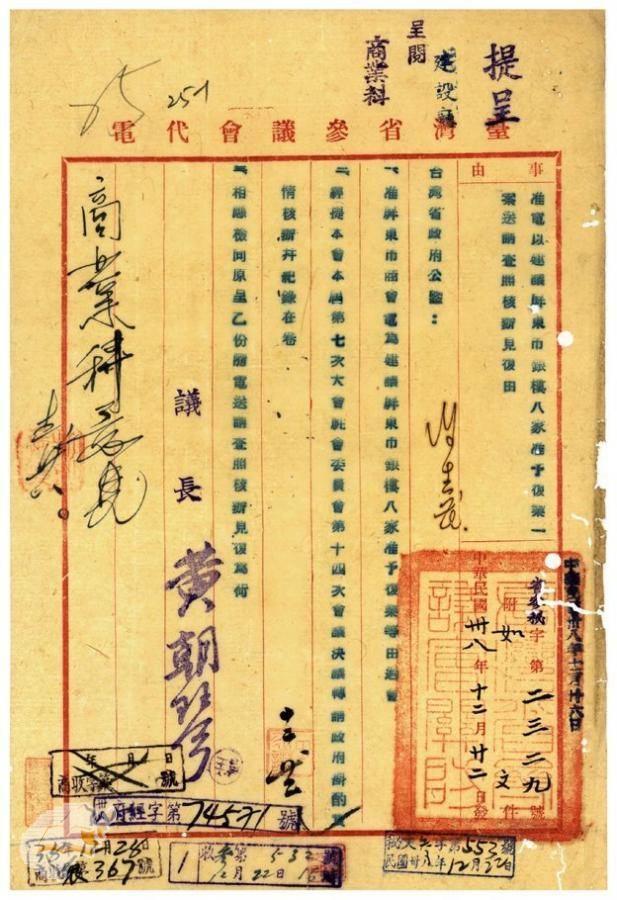 提呈
呈閱
建設廳
商業科
251
臺灣省參議會代電
事由
准電以建議屏東市銀樓八家准予復業一
案送請查照核辦見復由
中華民國卅八年十二月廿六日
省參議字第二三二九號
附如文件
中華民國卅八年十二月廿二日發
台灣省政府公鑒:
一、准屏東市商會電為建議屏東市銀樓八家准予復業等由過會
二、經提本會本屆第七次大會駐會委員會第十四次會議決議轉請政府斟酌實
情核辦幷紀錄在卷
三、相應檢同原呈乙份隨電送請查照核辦見復為荷
議長 黃朝琴
商業科意見
年月日
商收字第號
府經字第74571號
12月28日
367號
收參第532號
12月22日